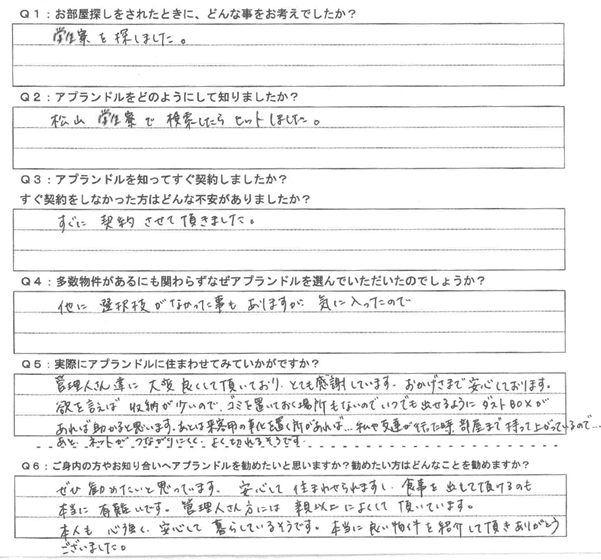 Q1：お部屋探しをされたときに、どんな事をお考えでしたか？
学生寮を探しました。
Q2：アプランドルをどのようにして知りましたか？
松山 学生寮で検索したらヒットしました。
Q3：アプランドルを知ってすぐ契約しましたか？
すぐ契約をしなかった方はどんな不安がありましたか？
すぐに契約させて頂きました。
Q4：多数物件があるにも関わらずなぜアプランドルを選んでいただいたのでしょうか？
他に選択枝がなかった事もありますが、気に入ったので
Q5：実際にアプランドルに住まわせてみていかがですか？
管理人さん達に大変良くして頂いており、とても感謝しています。おかげさまで安心しております。
欲を言えば収納が少いので、ゴミを置いておく場所もないので、いつでも出せるようにダストBOXが
あれば助かると思います。あとは来客用の単化を置く所があれば…私や友達が行った時、部屋まで持って上がっているので…
あと、ネットがつながりにくく、よく切れるそうです。
Q6：ご身内の方やお知り合いへアプランドルを勧めたいと思いますか？勧めたい方はどんなことを勧めますか？
ぜひ勧めたいと思っています。安心して住まわせられますし、食事を出して頂けるのも
本当に有難いです。管理人さん方には親以上によくして頂いています。
本人も心強く、安心して暮らしているそうです。本当に良い物件を紹介して頂きありがとう
ございました。